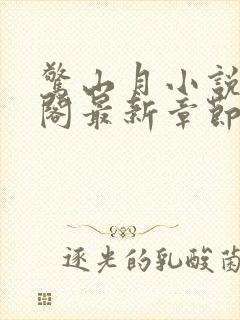 驚山月小說
閣最新章節
逐光的乳酸菌